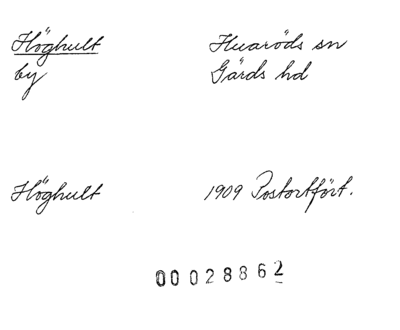 Höghult Huaröds sn
by Gärds hd
Höghult 1909 Postortfört.
00028862